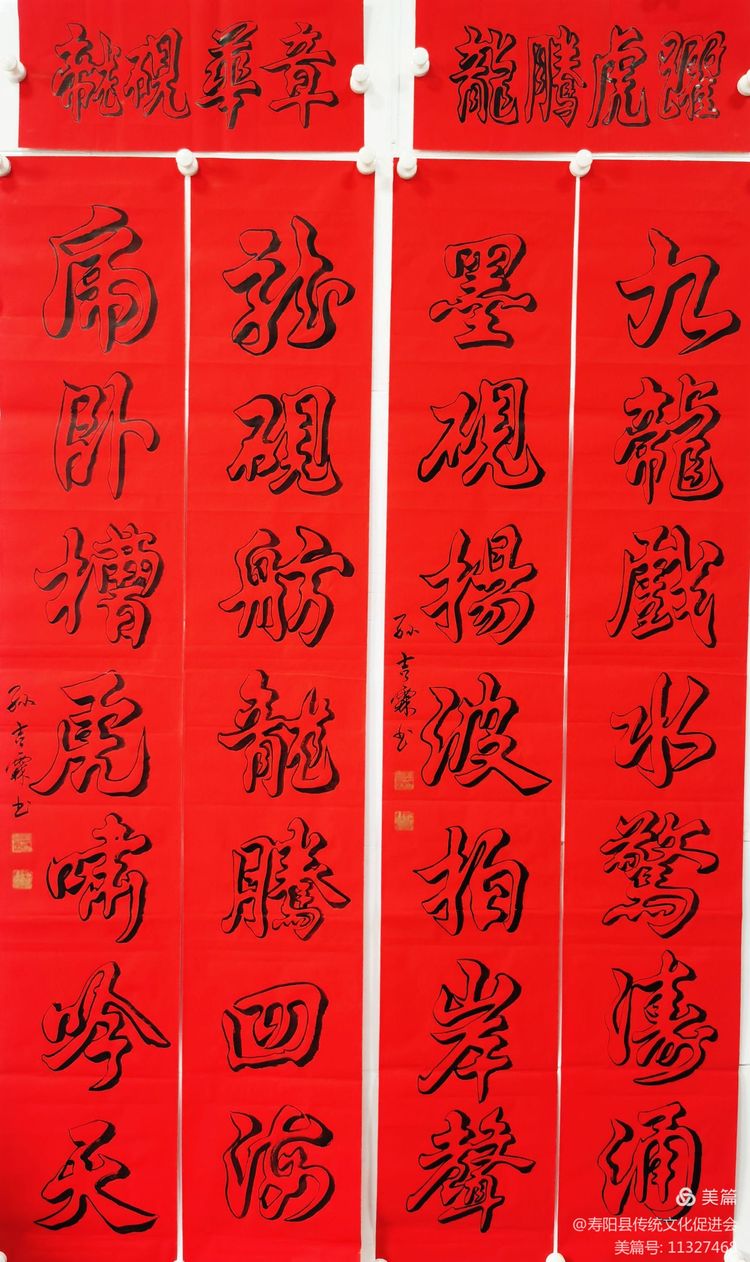 龍騰虎躍
九龍戲水驚濤涌
墨硯揚波拍岸聲
孙吉霖书
硯華章
硯舫龍騰四海
卧槽虎嘯吟天
孙吉霖书
美篇
@寿阳县传统文化促进会
美篇号: 11327468